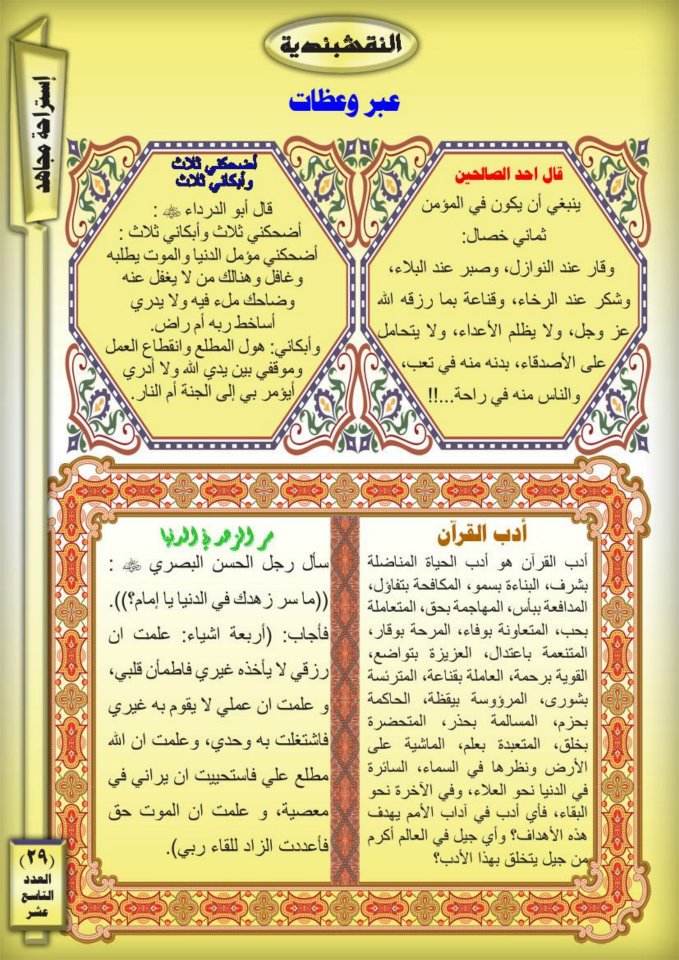 النقشبندية
إستراحة مجاهد
عبر وعظات
قال احد الصالحين
ينبغي أن يكون في المؤمن
ثماني خصال:
وقار عند النوازل، وصبر عند البلاء،
وشكر عند الرخاء، وقناعة بما رزقه الله
عز وجل، ولا يظلم الأعداء، ولا يتحامل
على الأصدقاء، بدنه منه في تعب،
والناس منه في راحة...!!
أضحكني ثلاث
وأبكاني ثلاث
قال أبو الدرداء :
أضحكني ثلاث وأبكاني ثلاث :
أضحكني مؤمل الدنيا والموت يطلبه
وغافل وهنالك من لا يغفل عنه
وضاحك ملء فيه ولا يدري
أساخط ربه أم راض.
وأبكاني: هول المطلع وانقطاع العمل
وموقفي بين يدي الله ولا أدري
أيؤمر بي إلى الجنة أم النار.
أدب القرآن
أدب القرآن هو أدب الحياة المناضلة
بشرف، البناءة بسمو، المكافحة بتفاؤل،
المدافعة ببأس، المهاجمة بحق، المتعاملة
بحب، المتعاونة بوفاء، المرحة بوقار،
المتنعمة باعتدال، العزيزة بتواضع،
القوية برحمة، العاملة بقناعة، المترئسة
بشورى، المرؤوسة بيقظة، الحاكمة
بحزم، المسالمة بحذر، المتحضرة
بخلق، المتعبدة بعلم، الماشية على
الأرض ونظرها في السماء، السائرة
في الدنيا نحو العلاء، وفي الآخرة نحو
البقاء، فأي أدب في آداب الأمم يهدف
هذه الأهداف؟ وأي جيل في العالم أكرم
من جيل يتخلق بهذا الأدب؟
سر الزهد في الدنيا
سأل رجل الحسن البصري :
((ما سر زهدك في الدنيا يا إمام؟)).
فأجاب: (أربعة اشياء: علمت ان
رزقي لا يأخذه غيري فاطمأن قلبي،
و علمت ان عملي لا يقوم به غيري
فاشتغلت به وحدي، وعلمت ان الله
مطلع علي فاستحييت ان يراني في
معصية، و علمت ان الموت حق
فأعددت الزاد للقاء ربي).
(٢٩)
العدد
التاسع
عشر